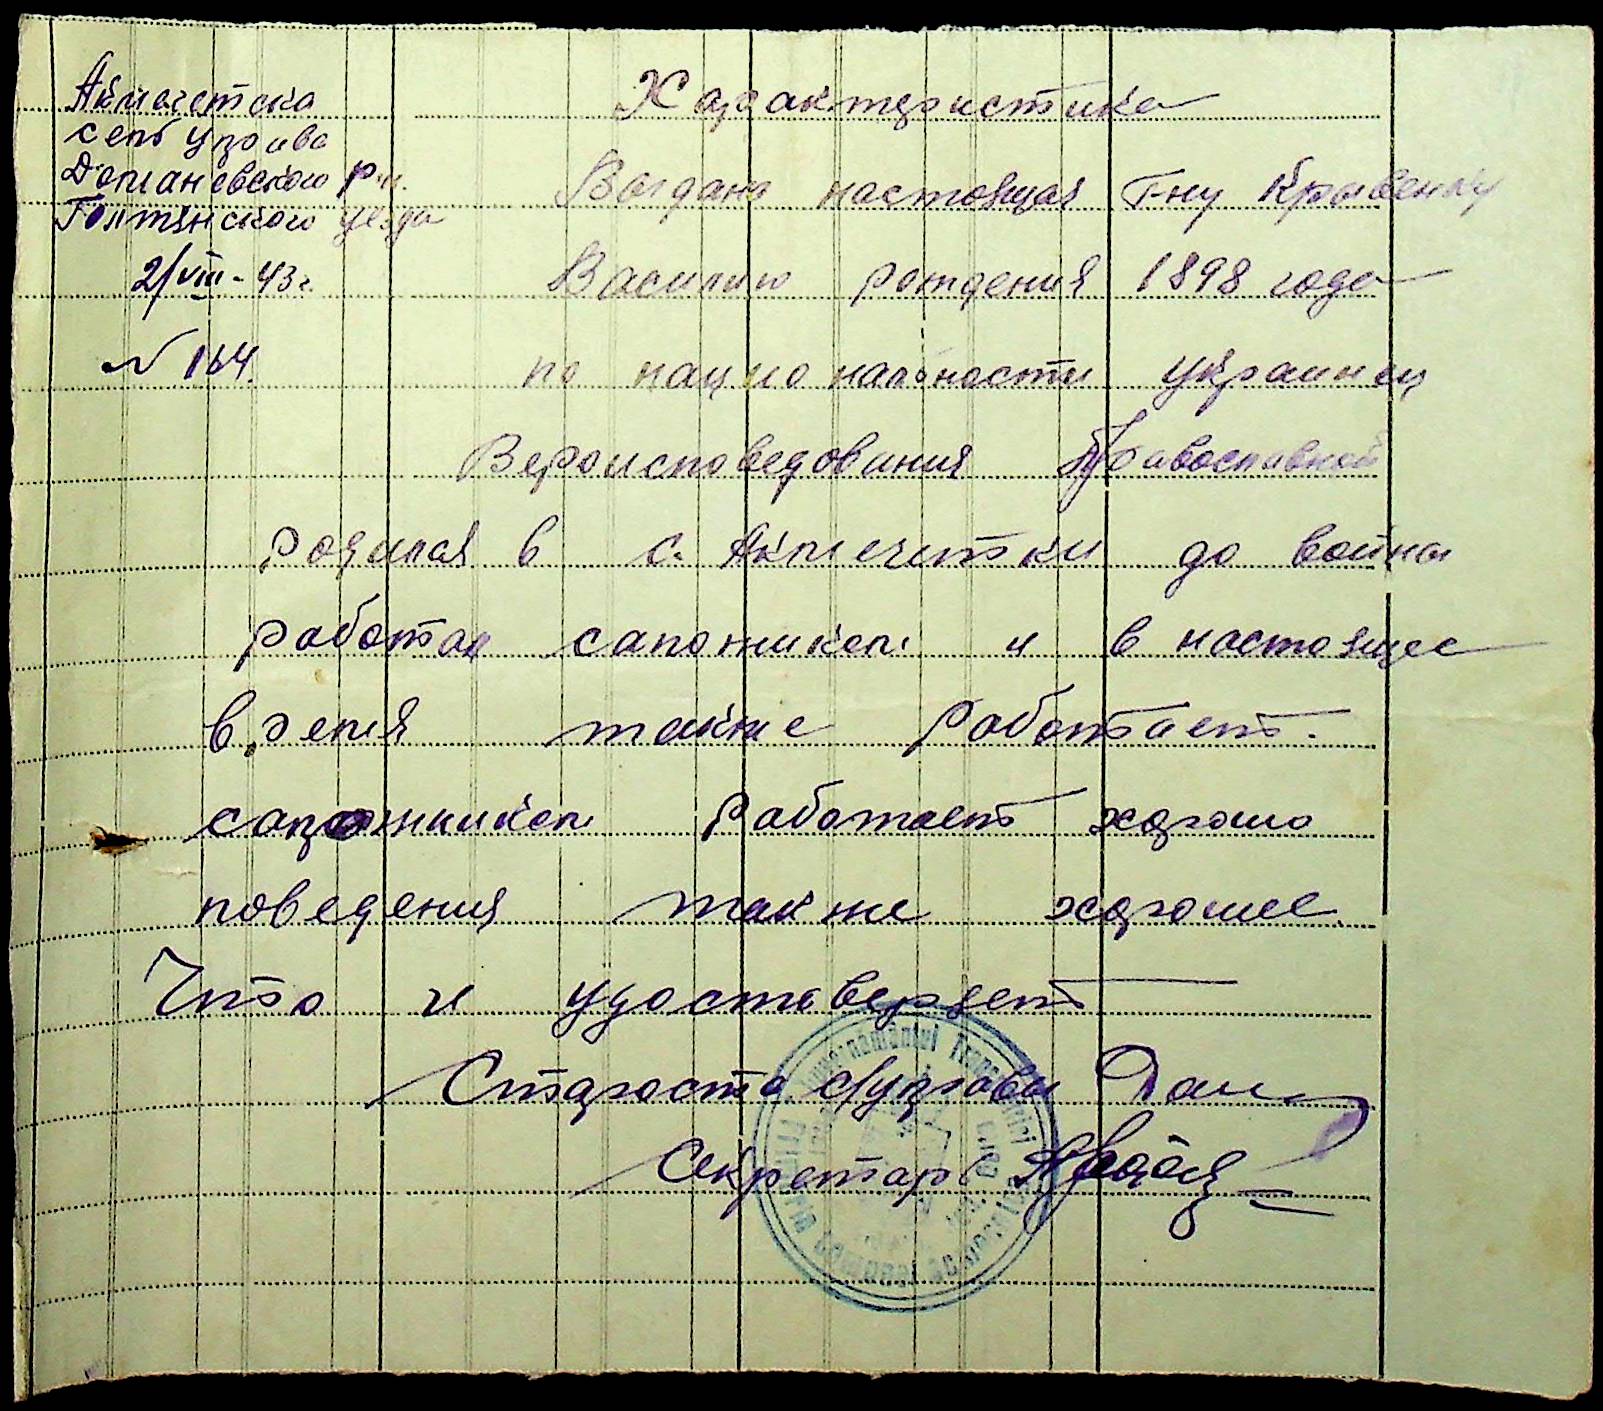 Акмечетска
сель управа
Доманевского р-н.
Голтянского уезда
2/VIII-43 г.
№ 164.
Характеристика
Выдана настоящая Г-ну Кравенку
Василию рождения 1898 года
по национальности украинец
Вероисповедования Православной
родился в с. Акмечетки до войны
работал сапожником и в настоящее
время также работает.
сапожником работает хорошо
поведения также хорошее
Что и удостоверяет
Староста с/управы
Секретарь